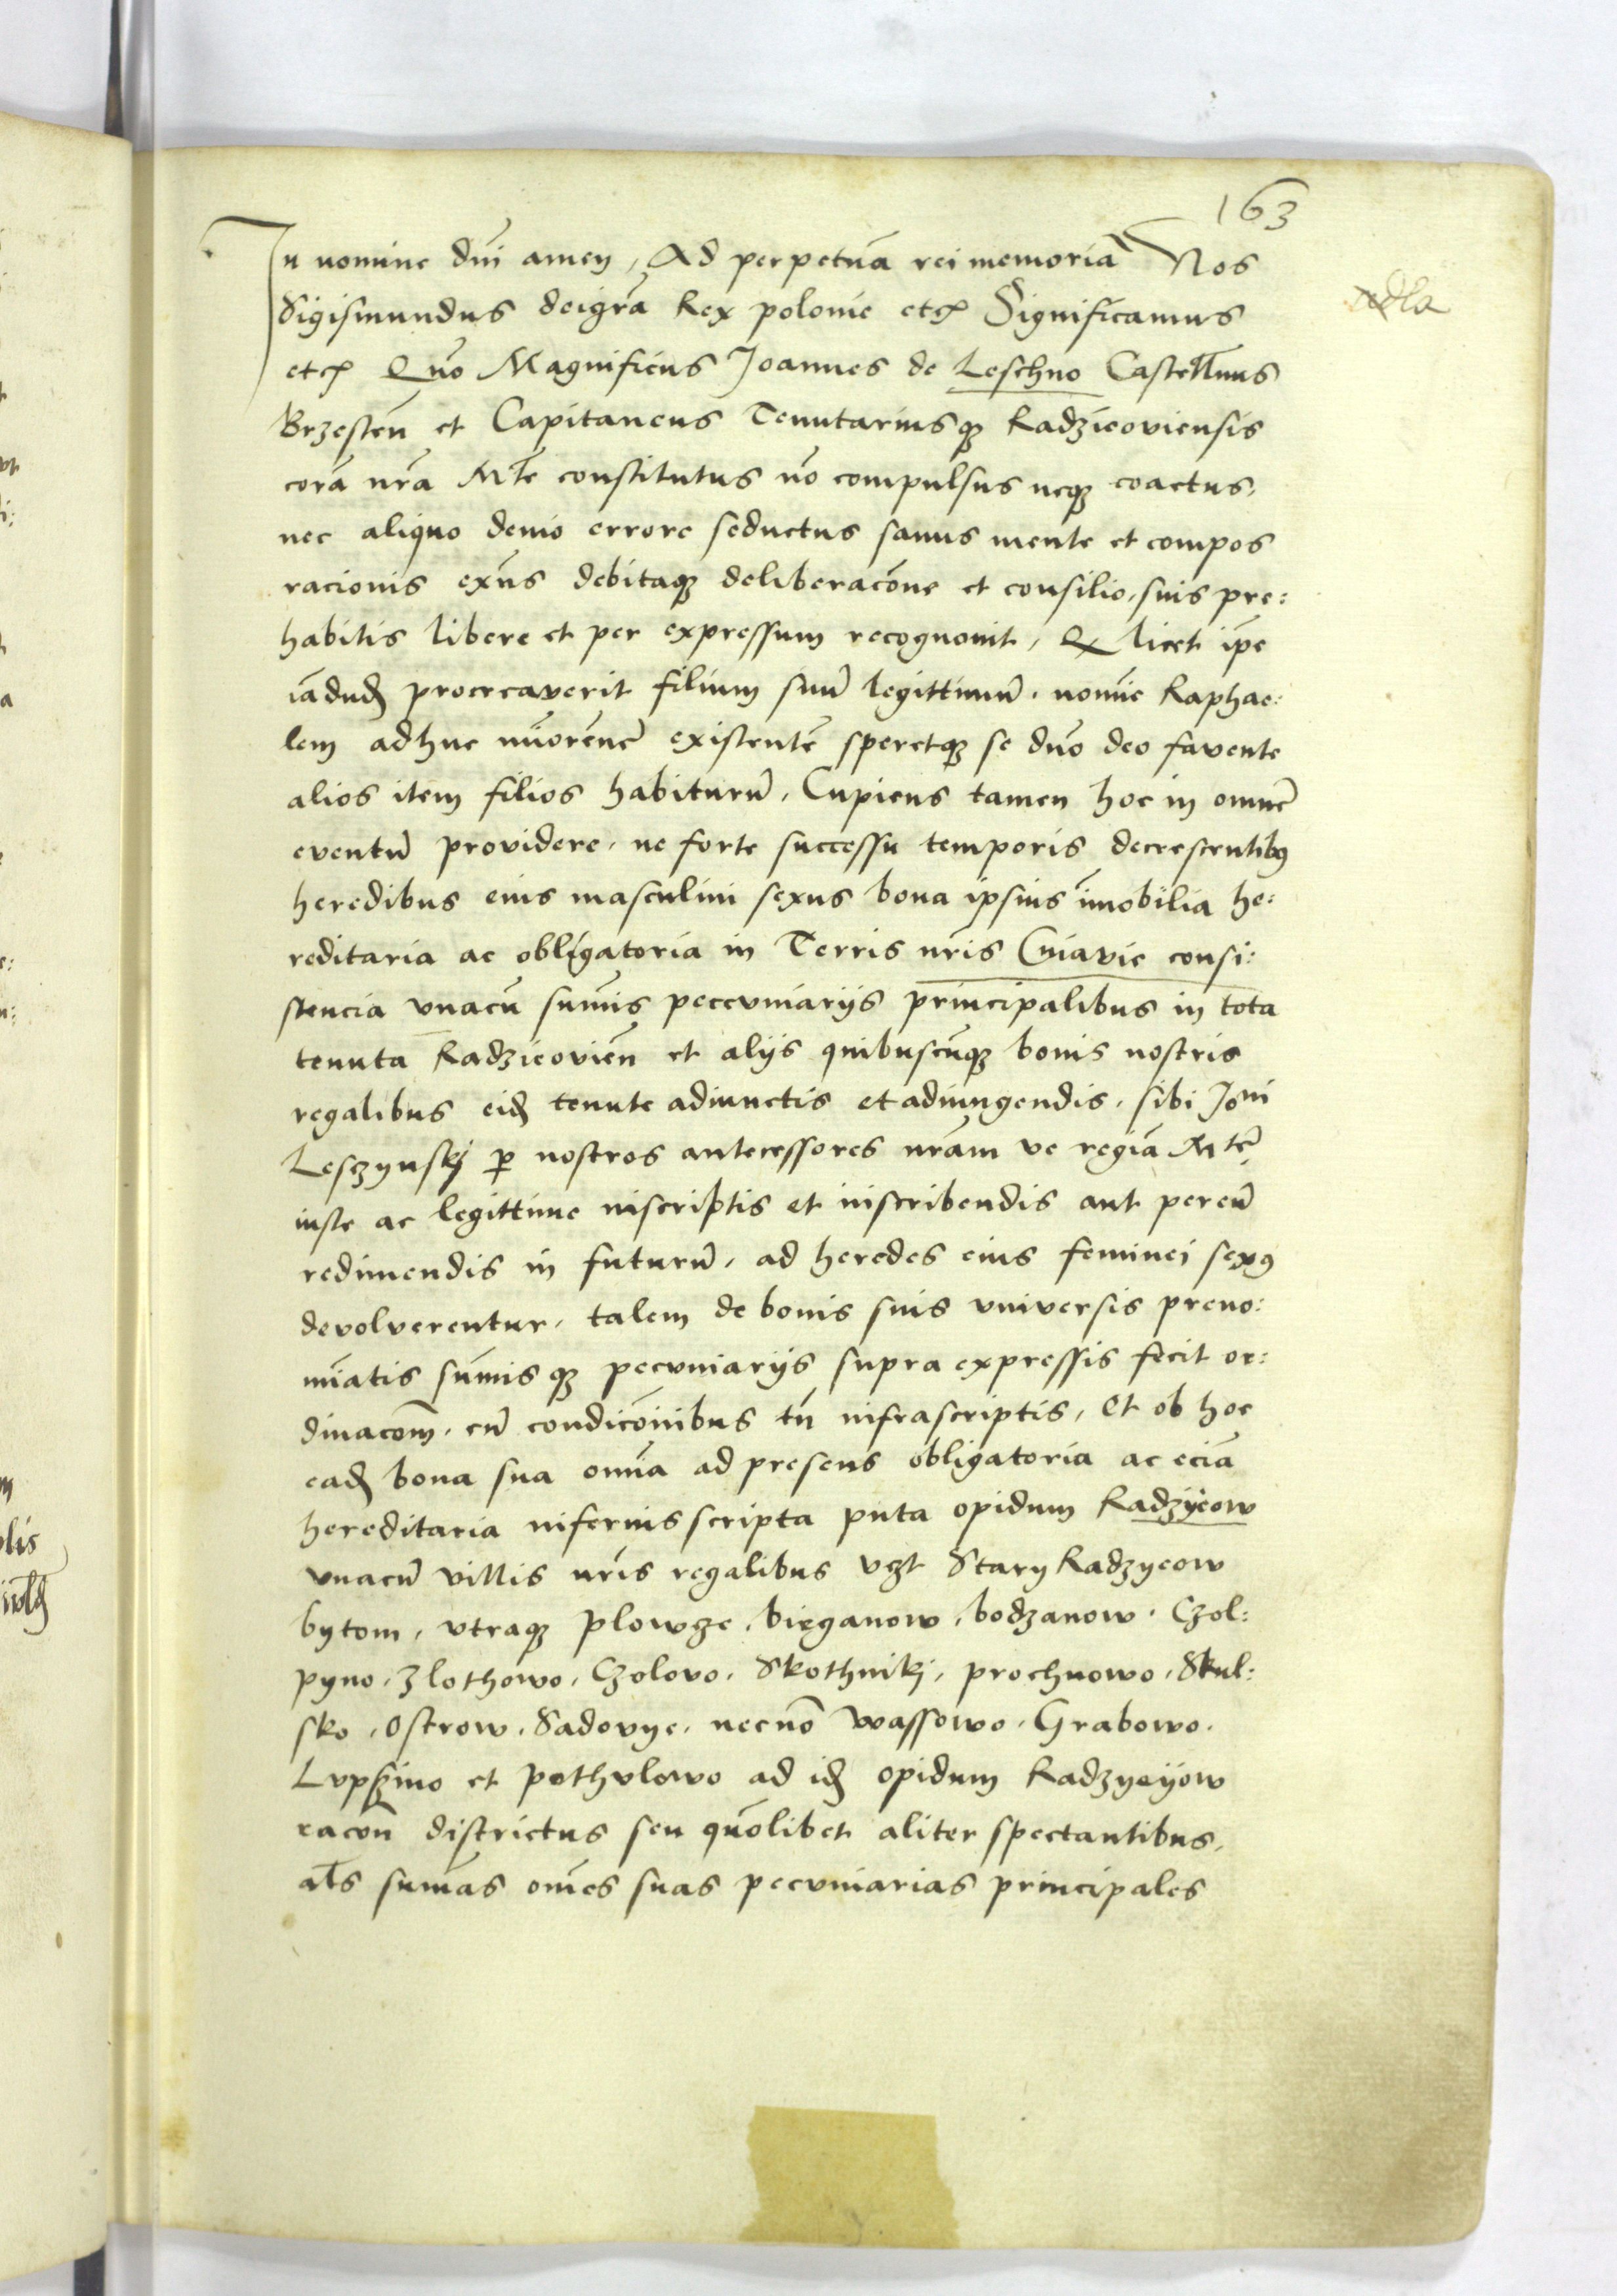 163
In nomine dni amen, Ad perpetuã rei memoriã Nos
Sigismundus deigrã Rex polonie etc̃ Significamus
etc̃ Quõ Magnificus Joannes de Leschno Castellñus
Brzesteñ et Capitaneus Tenutariusqꝫ Radzieoviensis
corã nrã Mte constitutus nõ compulsus neqꝫ coactus,
nec aliquo devio errore seductus sanus mente et compos
racionis exñs debitaqꝫ deliberacõne et consilio, suis pre:
habitis libere et per expressum recognovit, Q licet ip̃e
iãdudꝫ procreaverit filium suũ legittimũ, nomĩe Raphae:
lem adhuc mĩorẽnẽ existentẽ speretqꝫ se dño deo favente
alios item filios habiturũ, Cupiens tamen hoc in omnẽ
eventũ providere, ne forte successu temporis decrescentibꝰ
heredibus eius masculini sexus bona ipsius ĩmobilia he:
reditaria ac obligatoria in Terris nr̃is Cuiavie consi:
stencia vnacũ sum̃is peccuniarijs principalibus in tota
tenuta Radzieovieñ et alijs quibuscũqꝫ bonis nostris
regalibus eidꝫ tenute adiunctis et adiungendis, sibi Joñi
Lesczynskj ꝑ nostros antecessores nrãm ve regiã Mtẽ
iuste ac legittime inscriptis et inscribendis aut per eũ
redimendis in futurũ, ad heredes eius feminei sexꝰ
devolverentur, talem de bonis suis vniversis preno:
mĩatis sum̃isqꝫ pecuniarijs supra expressis fecit or:
dinacõm, cũ condicõnibus tñ infrascriptis, Et ob hoc
eadꝫ bona sua om̃ia ad presens obligatoria ac eciã
hereditaria inferius scripta puta opidum Radzyeow
vnacũ villis nr̃is regalibus vꝫt Stary Radzyeow
bytom, vtraqꝫ plowze, bieganow, bodzanow, Czol:
pyno, Zlothowo, Czolovo, Skothnikj, prochnowo, Skul:
sko, Ostrow, Sadovye, necnõ Wassowo, Grabowo,
Lvpszino et pothvlowo ad idꝫ opidum Radzyeyow
racoñ districtus seu quõlibet aliter spectantibus,
als sum̃as om̃es suas pecuniarias principales